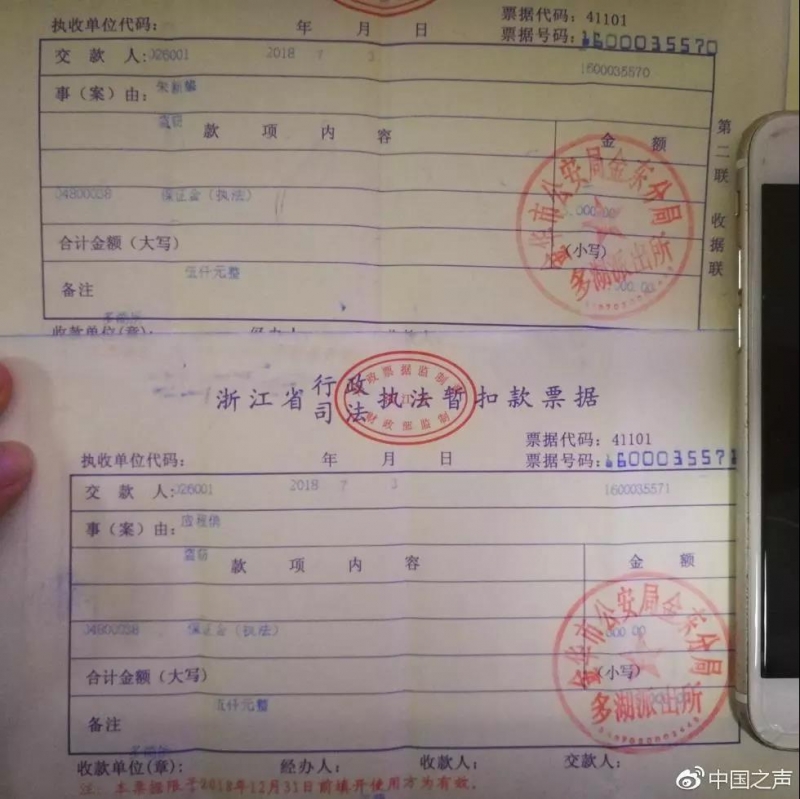 执收单位代码: 年 月 日 票据代码: 41101
票据号码: 1600035570
交 款 人: 026001 2018 7 3 1600035570
事（案）由: 朱新
盗窃 款 项 内 容 金 额
第二联 收据联
04800038 保证金（执法） 000.00
合计金额（大写） （小写）
伍仟元整 000.00
备注
收款单位(章): 经办人:
金华市公安局金东分局
多湖派出所
浙江省行政司法执法暂扣款票据
财政票据监制
浙江
财政部监制
票据代码: 41101
执收单位代码: 年 月 日 票据号码: 1600035571
交 款 人: 026001 2018 7 3 1600035571
事（案）由: 应
盗窃 款 项 内 容 金 额
04800038 保证金（执法） 000.00
合计金额（大写） （小写）
伍仟元整
备注
收款单位(章): 经办人: 收款人: 交款人:
注: 本票据限于2018年12月31日前填开使用方为有效。
金华市公安局金东分局
多湖派出所
中国之声